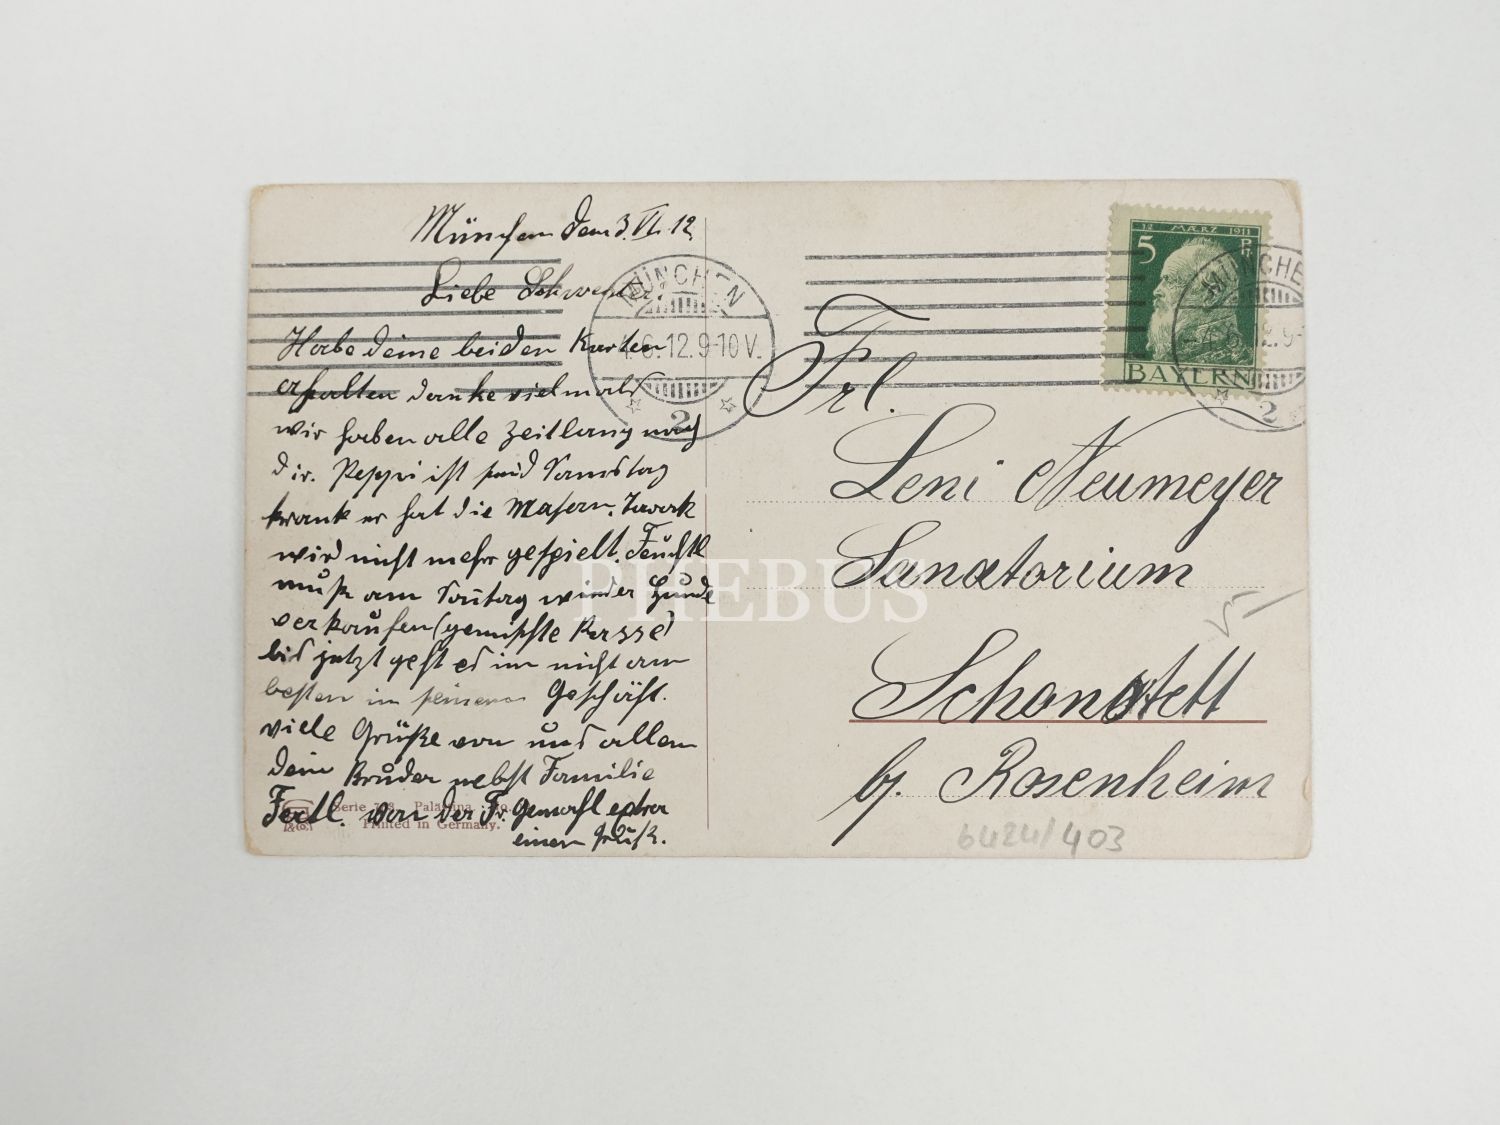 München den 3. VI. 12.
Liebe Schwester!
Habe deine beiden Karten
erhalten danke vielmals
wir haben alle Zeitlang nach
dir. Peppi ist seid Samstag
krank er hat die Masern. Tarock
wird nicht mehr gespielt. Feuchtl
muß am Sontag wieder Hunde
verkaufen (gemischte Rasse)
bis jetzt geht es im nicht am
besten im seinem Geschäft.
viele Grüße von uns allen
dein Bruder nebst Familie
Fertl. von der Fr. Gemahl extra
einen Gruß.
Serie Palästina No.
Printed in Germany.
& Co.
MÜNCHEN
4.6.12.9-10V.
2
18 MÄRZ 1911
5 Pf.
BAYERN
MÜNCHEN
2
Frl.
Leni Neumeyer
Sanatorium
Schonstett
b/. Rosenheim
6424/403
PHEBUS